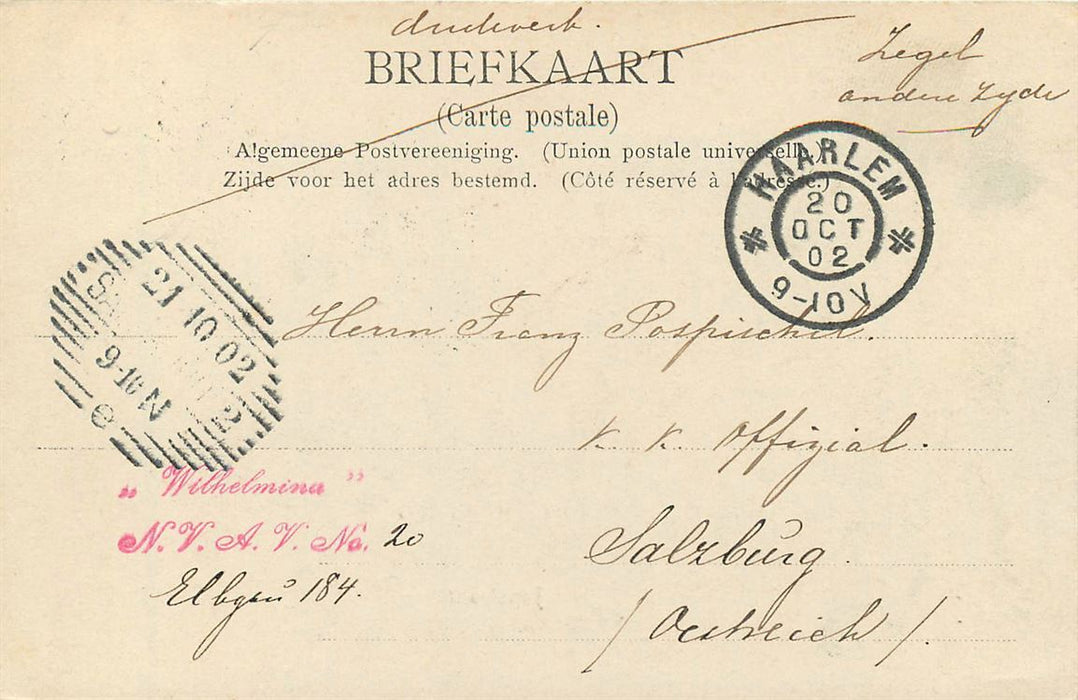 drukwerk.
Zegel
andere zyde
BRIEFKAART
(Carte postale)
Algemeene Postvereeniging. (Union postale universelle.)
Zijde voor het adres bestemd. (Côté réservé à l'adresse.)
HAARLEM
20
OCT
02
9-10V
21 10 02
9-10 N
2
Herrn Franz Pospischil.
k. k. Offizial.
„ Wilhelmina ”
N. V. A. V. No. 20
Salzburg.
Elbgau 184.
/ Oestreich /.